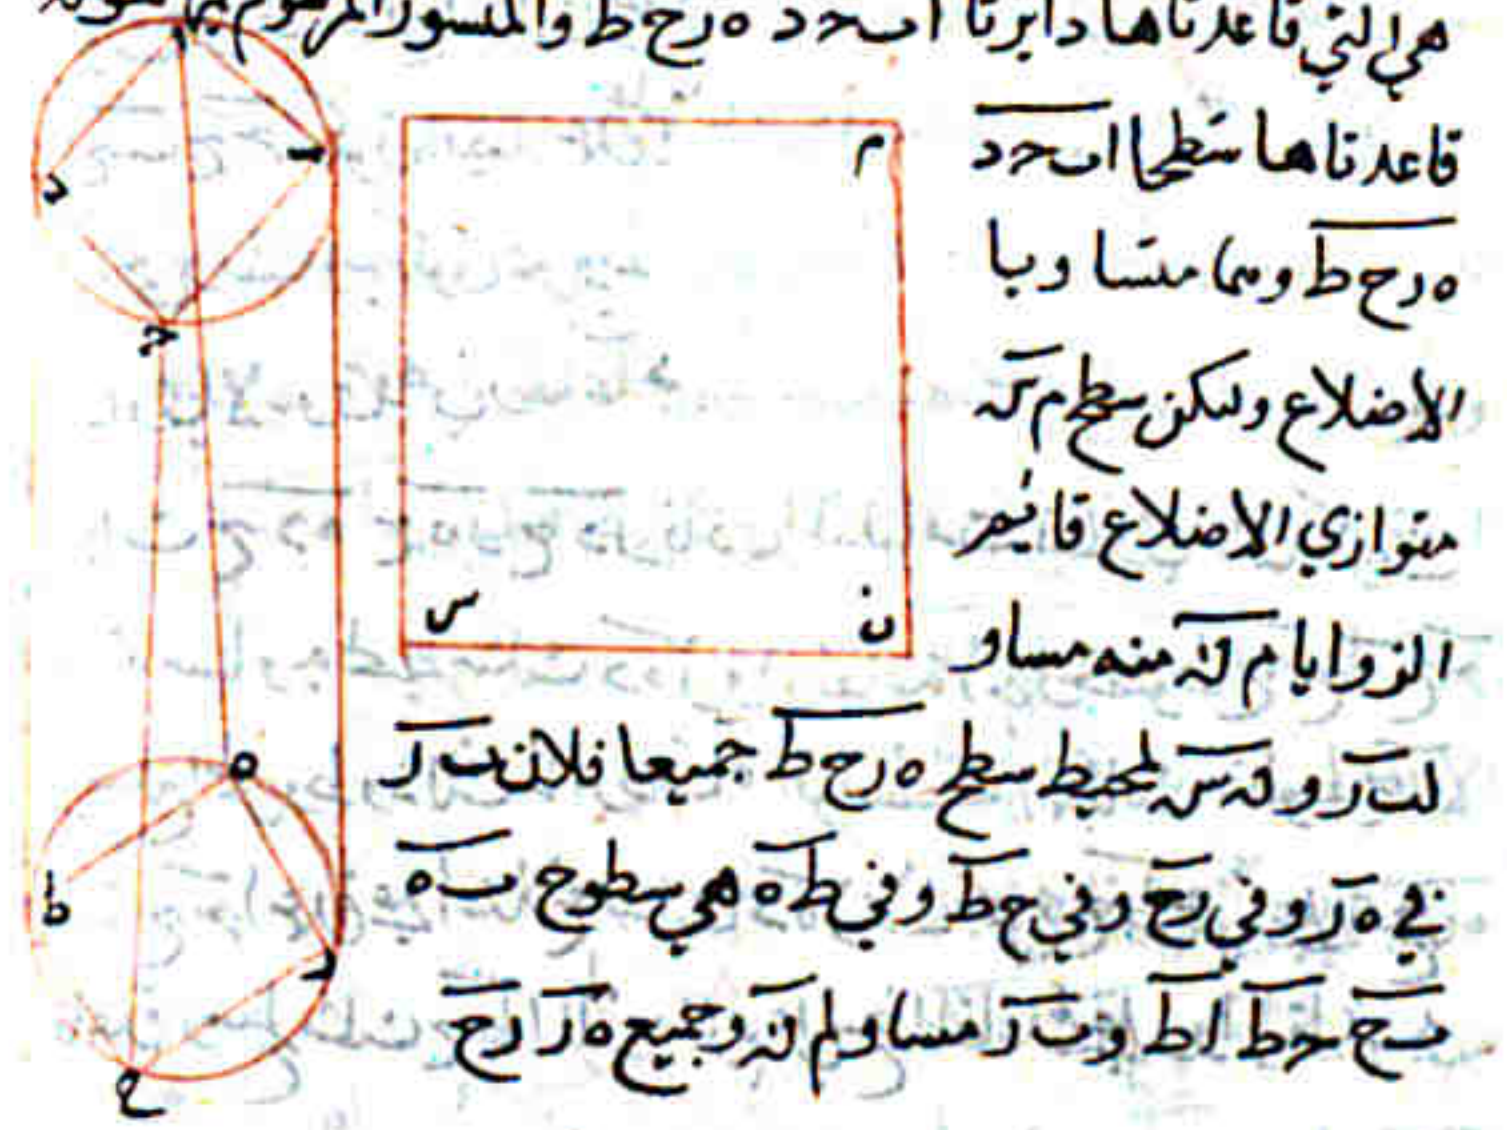 هي التي قاعدتاها دايرتا اب حد ه رح ط والمنشور المرسوم
قاعدتاها سطحا اب حد
ه رح ط وهما متساويا
الاضلاع وليكن سطح م س
متوازي الاضلاع قايم
الزوايا م ن منه مساو
لب ر و ن س لمحيط سطح ه رح ط جميعا فلان ب ر
في ه ر وفي رح وفي ح ط وفي ط ه هي سطوح ب ه
ب ح حط اط و ب ر مساو لم ن وجميع ه ر رح
ا
ب
د
ح
م
س
ن
ه
ط
ر
ح